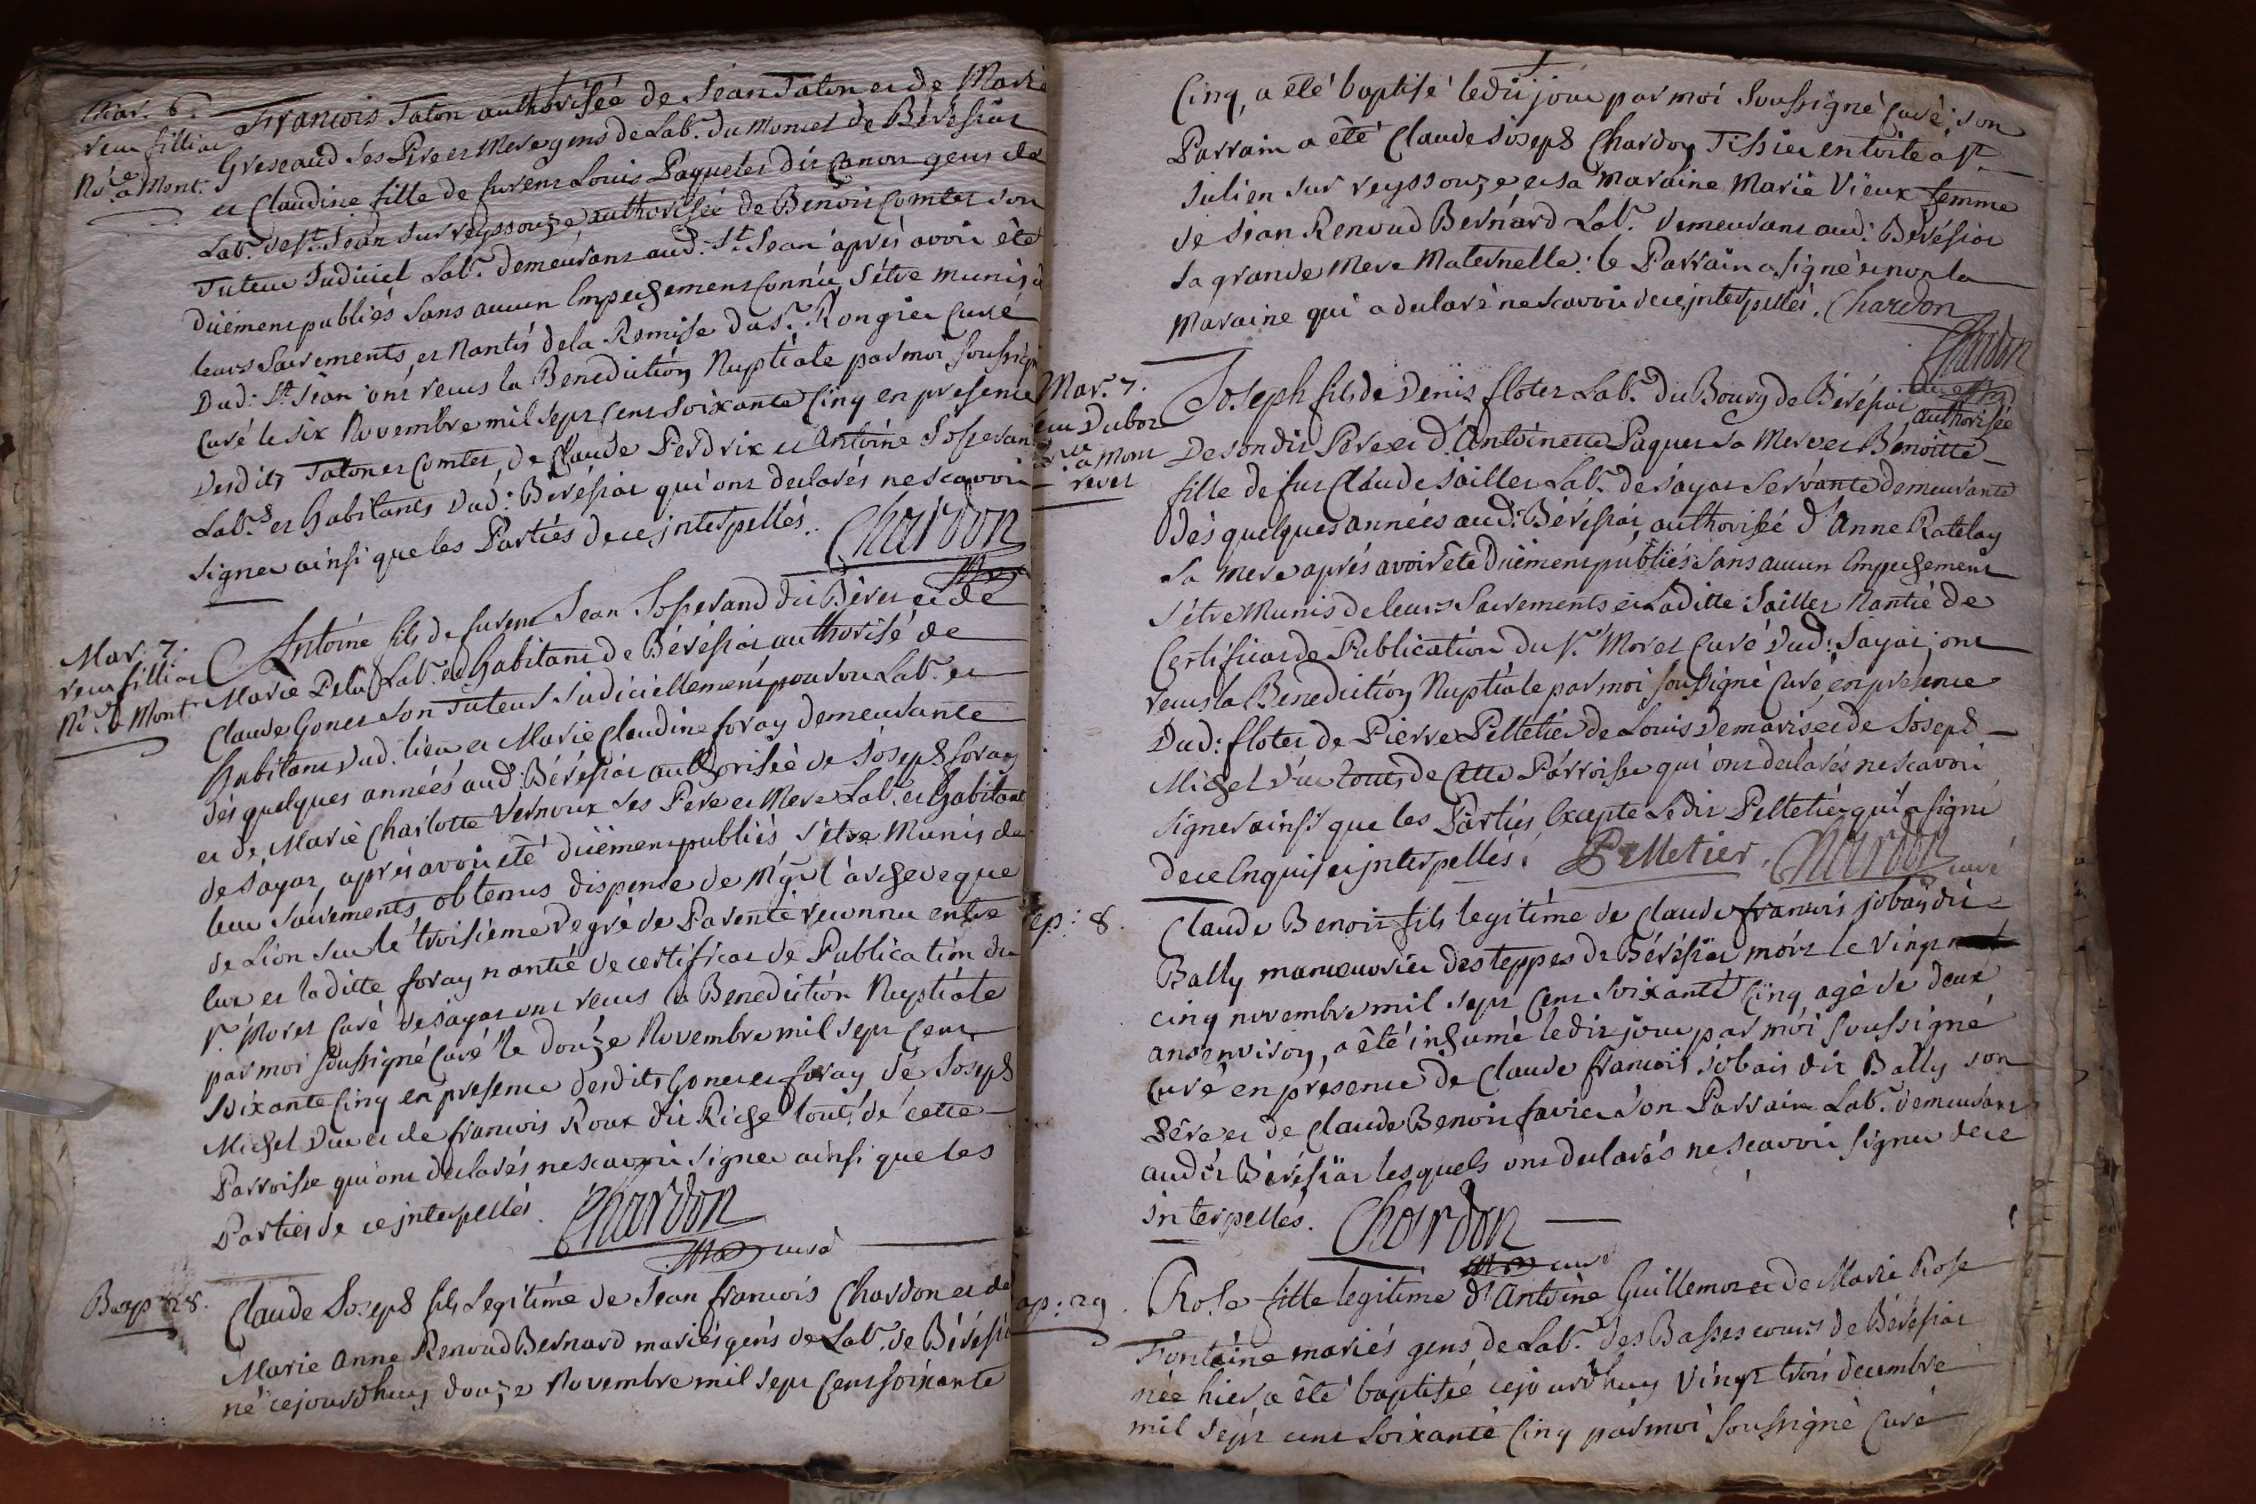 Mar. 6.
reçu fillion
Nre a Mont.
François Taton authorisée de Jean Taton et de Marie
Greseaud ses Pere et Mere gens de Labr. du Moncet de Béréÿiat
et Claudine fille de furent Louis Paquelet dit Canon gens de
Labr. de St. Jean sur reyssouze, authorisée de Benoit Comtet son
Tuteur Judiciel Labr. demeurant aud: St. Jean après avoir été
düement publiés sans aucun Empechement connu, s'être munis de
leurs Sacrements, et Nantis de la Remise du Sr. Rongier Curé
Dud: St. Jean ont recus la Benediction Nuptiale par moi soussigné
Curé le six Novembre mil sept cent soixante cinq en presence
desdits Taton et Comtet, de Claude Perdrix et Antoine Josserand
Labrs. et habitants dud: Béréÿiat qui ont declarés ne scavoir
signer ainsi que les Parties de ce interpellés. Chardon
Mar. 7.
reçu fillion
Nre. a Mont.
Antoine fils de furent Jean Josserand dit Béret et de
Marie Labr. et habitant de Béréÿiat authorisé de
Claude Gonet son Tuteur Judiciellement pourvu Labr. et
habitant dud. lieu et Marie Claudine foray demeurante
dés quelques années aud: Béréÿiat authorisée de Joseph foray
et de Marie Charlotte Vernoux ses Pere et Mere Labr. et habitant
de Jayat, après avoir été düement publiés s'être Munis de
leur Sacrements, obtenus dispense de Mgr. l'archeveque
de Lion sur le troisieme degré de Parenté reconnu entre
eux et laditte foray nantie de certificat de Publication du
Sr. Moret Curé de Jayat ont recus la Benediction Nuptiale
par moi soussigné Curé le douze Novembre mil sept cent
soixante cinq en presence desdits Gonet et foray de Joseph
Michel Vuet et de francois Roux dit Riche tous de cette
Parroisse qui ont declarés ne scavoir signer ainsi que les
Parties de ce interpellés. Chardon
curé
Bap: 28.
Claude Joseph fils Legitime de Jean francois Chardon et de
Marie Anne Renoud Bernard mariés gens de Labr. de Béréÿiat
né cejourdhuy douze Novembre mil sept cent soixante
Cinq, a été baptisé ledit jour par moi soussigné curé; son
Parrain a été Claude Joseph Chardon Tissier en toile a St.
Julien sur reyssouze et sa maraine Marie Vieux femme
de Jean Renoud Bernard Labr. demeurant aud: Béréÿiat
sa grande Mere Maternelle: le Parrain a signé et non la
Maraine qui a declaré ne scavoir de ce interpellés. Chardon
Chardon
curé
Mar. 7.
reçu Dubor
Nre a Mont
revel
Joseph fils de Denis flotet Labr. du Bourg de Béréÿiat authorisée
De son dit Pere et d'Antoinette Paquet sa Mere et Benoitte
fille de fut Claude Jaillet Labr. de Jayat Servante demeurante
dés quelques années aud: Béréÿiat, authorisée d'Anne Ratelay
sa Mere après avoir été Düement publiés sans aucun Empechement
s'être Munis de leurs Sacrements et Laditte Jaillet Nantie de
Certificat de Publication du Sr. Moret Curé dud: Jayat, ont
recus la Benediction Nuptiale par moi soussigné Curé en présence
Dud: flotet de Pierre Pelletier de Louis Demaris et de Joseph
Michel Vuet tous de Cette Parroisse qui ont declarés ne scavoir
signer ainsi que les Parties Excepte Ledit Pelletier qui a signé
de ce Enquis et interpellés. Pelletier. Chardon
curé
Sep: 8.
Claude Benoit fils legitime de Claude francois jobais dit
Bally manouvrier des teppes de Béréÿiat mort le vingt
cinq novembre mil sept cent soixante cinq agé de deux
ans environ, a été inhumé ledit jour par moi soussigné
curé en presence de Claude francois jobais dit Bally son
Pere et de Claude Benoit favier son Parrain Labr. demeurans
audit Béréÿiat lesquels ont declarés ne scavoir signer de ce
interpellés. Chardon
curé
Bap: 29.
Rose fille legitime d'Antoine Guillemot et de Marie Rose
Fontaine mariés gens de Labr. des Basses cours de Béréÿiat
née hier, a été baptisée cejourdhuy vingt trois decembre
mil sept cent soixante cinq par moi soussigné Curé